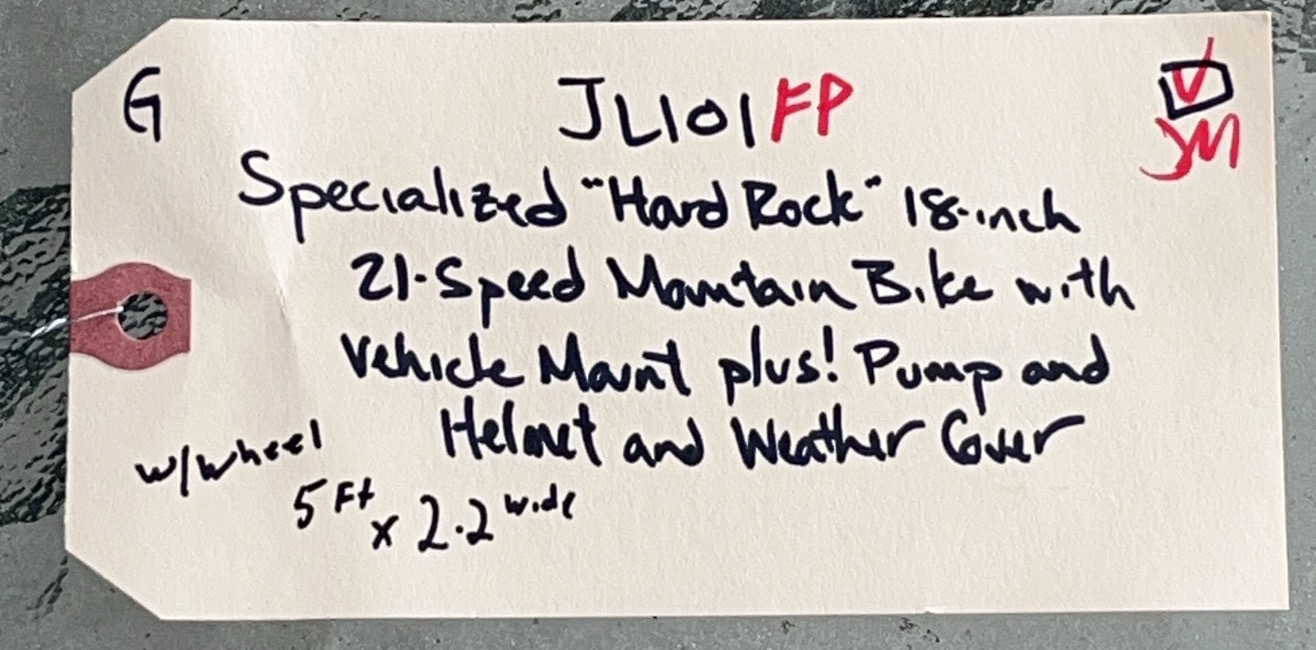 G JL101FP
JM
Specialized "Hard Rock" 18-inch
21-Speed Mountain Bike with
Vehicle Mount plus! Pump and
Helmet and Weather Cover
w/wheel
5 Ft x 2.2 wide